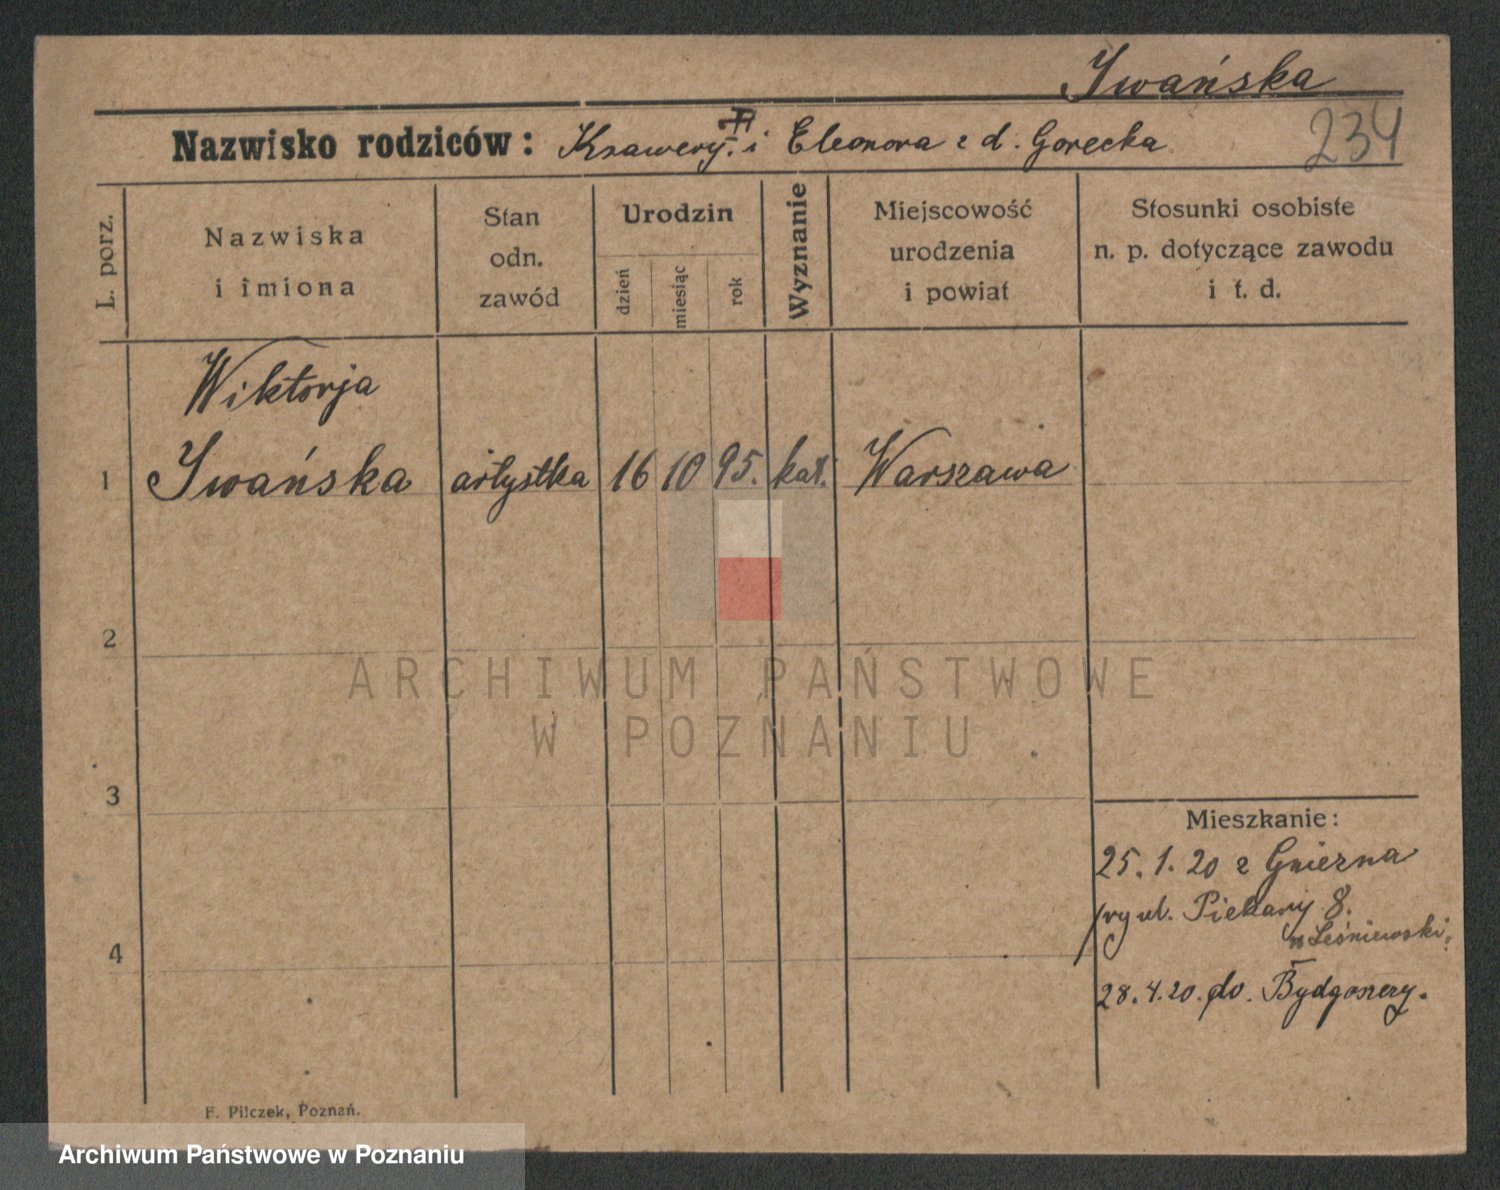 Iwańska
Nazwisko rodziców: Ksawery i Eleonora z d. Gorecka
234
L. porz.
Nazwiska
i imiona
Stan
odn.
zawód
Urodzin
dzień
miesiąc
rok
Wyznanie
Miejscowość
urodzenia
i powiat
Stosunki osobiste
n. p. dotyczące zawodu
i t. d.
Wiktorja
1 Iwańska artystka 16 10 95. kat. Warszawa
2
ARCHIWUM PAŃSTWOWE
W POZNANIU
3
Mieszkanie:
25. 1. 20 z Gniezna
ul. Piekary 8.
Leśniewski.
4
28. 4. 20. do. Bydgoszczy.
F. Pilczek, Poznań.
Archiwum Państwowe w Poznaniu